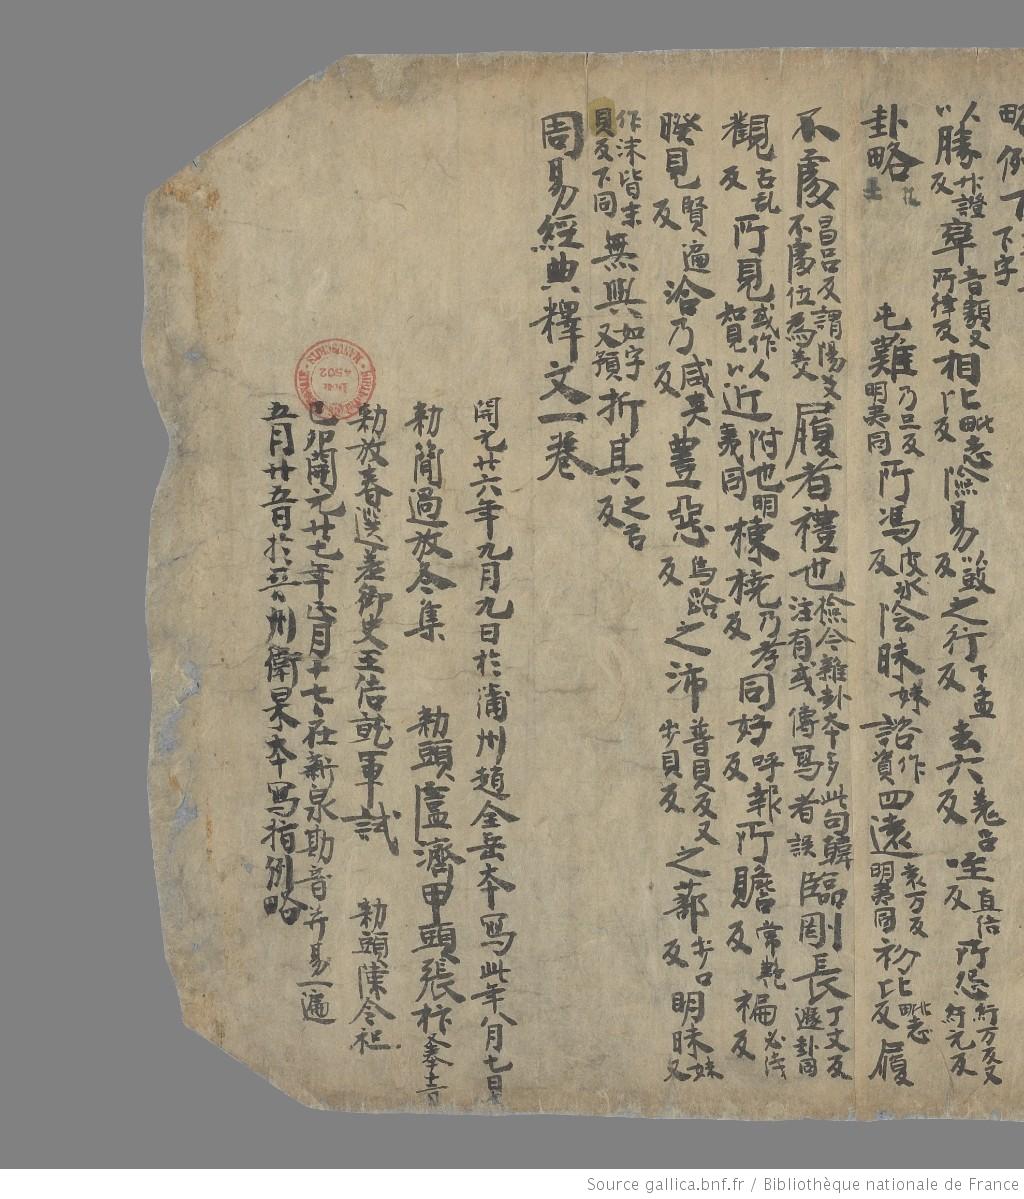 略例下
以勝 升證反 章 音類又所律反 相比 毗志反 險易 以豉反 之行 下孟反 去六 羌呂反 咥 直結反 所怨 紆万反又紆元反
卦略 屯難 乃旦反明夷同 所馮 皮冰反 陰昧 妹 諮 作資 四遠 袁万反明夷同 初比 毗志反 履
不處 昌呂反謂陽爻不處位為美 履者禮也 檢今雜卦本多此句韓注有或傳寫者誤 臨剛長 丁丈反遯卦同
觀 古乱反 所見 或作人智見 以近 附也明義同 棟橈 乃孝反 同好 呼報反 所贍 常艷反 褊 必淺反
睽見 賢遍反 洽乃 咸夾反 豐惡 烏路反 之沛 普貝反又步貝反 之蔀 步口反 明昧 妹又
作沬皆末貝反下同 無與 如字又預 折其 之舌反
周易經典釋文一卷
開元廿六年九月九日於蒲州趙全岳本寫此年八月七日
勑簡過放冬集 勑頭盧濟甲頭張祚
勑放春選差御史王佶就軍試 勑頭陳令
己卯開元廿七年正月十七在新泉勘音并易一遍
五月廿五日於州衛杲本寫指例略
SOUS
4502
Source gallica.bnf.fr / Bibliothèque nationale de France